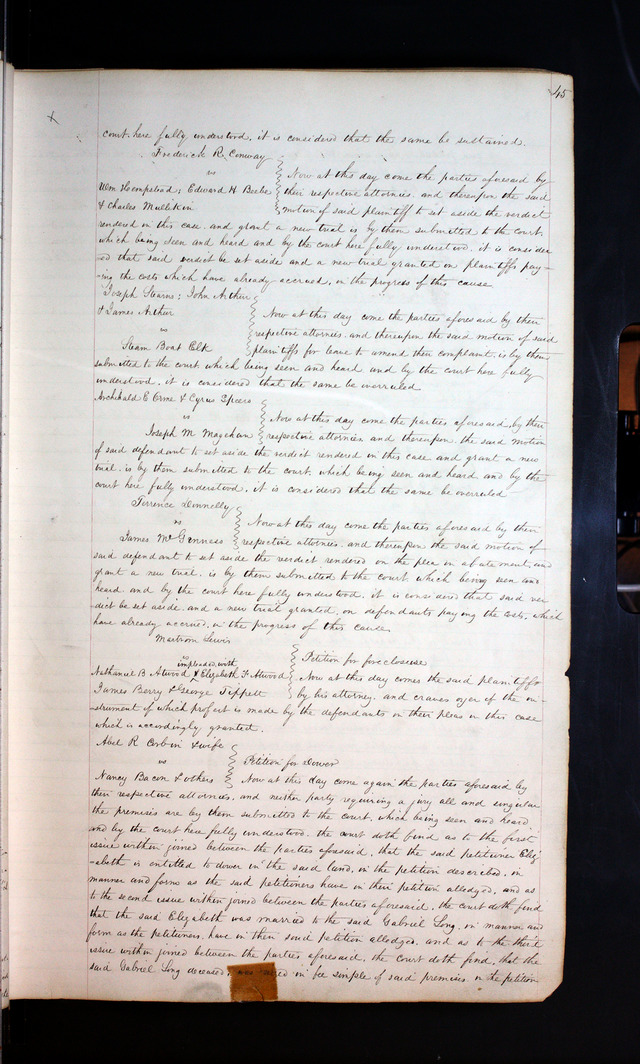 45
court here fully understood, it is considered that the same be sustained.
Frederick R. Conway
vs
Wm Hempstead; Edward H Beebe
& Charles Mullikin
Now at this day come the parties aforesaid by
their respective attornies, and thereupon the said
motion of said plaintiff to set aside the verdict
rendered in this case, and grant a new trial is by them submitted to the court,
which being seen and heard and by the court here fully understood, it is consider
ed that said verdict be set aside and a new trial granted on plaintiffs pay-
-ing the costs which have already accrued, in the progress of this cause
Joseph Stearns; John Arthur
& James Arthur
vs
Steam Boat Elk
Now at this day come the parties aforesaid by their
respective attornies, and thereupon the said motion of said
plaintiffs for leave to amend their complaint, is by them
submitted to the court, which being seen and heard and by the court here fully
understood, it is considered that the same be overruled
Archibald E Orme & Cyrus Speers
vs
Joseph M
Now at this day come the parties aforesaid, by their
respective attornies and thereupon the said motion
of said defendant to set aside the verdict rendered in this case and grant a new
trial, is by them submitted to the court, which being seen and heard, and by the
court here fully understood, it is considered that the same be overruled
Terrence Donnelly
vs
James McGinness
Now at this day come the parties aforesaid by their
respective attornies, and thereupon the said motion of
said defendant to set aside the verdict rendered on the plea in abatement, and
grant a new trial, is by them submitted to the court which being seen and
heard and by the court here fully understood, it is considered that said ver
dict be set aside, and a new trial granted, on defendants paying the costs, which
have already accrued, in the progress of this cause
Lewis
vs
impleaded with
Nathaniel B Atwood & Elizabeth F Atwood
James Berry & George Tippett
Petition for foreclosure
Now at this day comes the said plaintiff
by his attorney, and craves oyer of the in-
-strument of which profert is made by the defendants in their pleas in this case
which is accordingly granted.
Abel R Corbin & wife
vs
Nancy Bacon & others
Petition for Dower
Now at this day come again the parties aforesaid by
their respective attornies, and neither party requiring a jury all and singular
the premises are by them submitted to the court, which being seen and heard
and by the court here fully understood, the court doth find as to the first
issue within joined between the parties aforesaid, that the said petitioner Eliz
-abeth is entitled to dower in the said land, in the petition described, in
manner and form as the said petitioners have in their petition alledged, and as
to the second issue within joined between the parties aforesaid, the court doth find
that the said Elizabeth was married to the said Gabriel Long, in manner and
form as the petitioners, have in their said petition alledged, and as to the third
issue within joined between the parties aforesaid, the court doth find, that the
said Gabriel Long deceased, was seized in fee simple of said premises in the petition